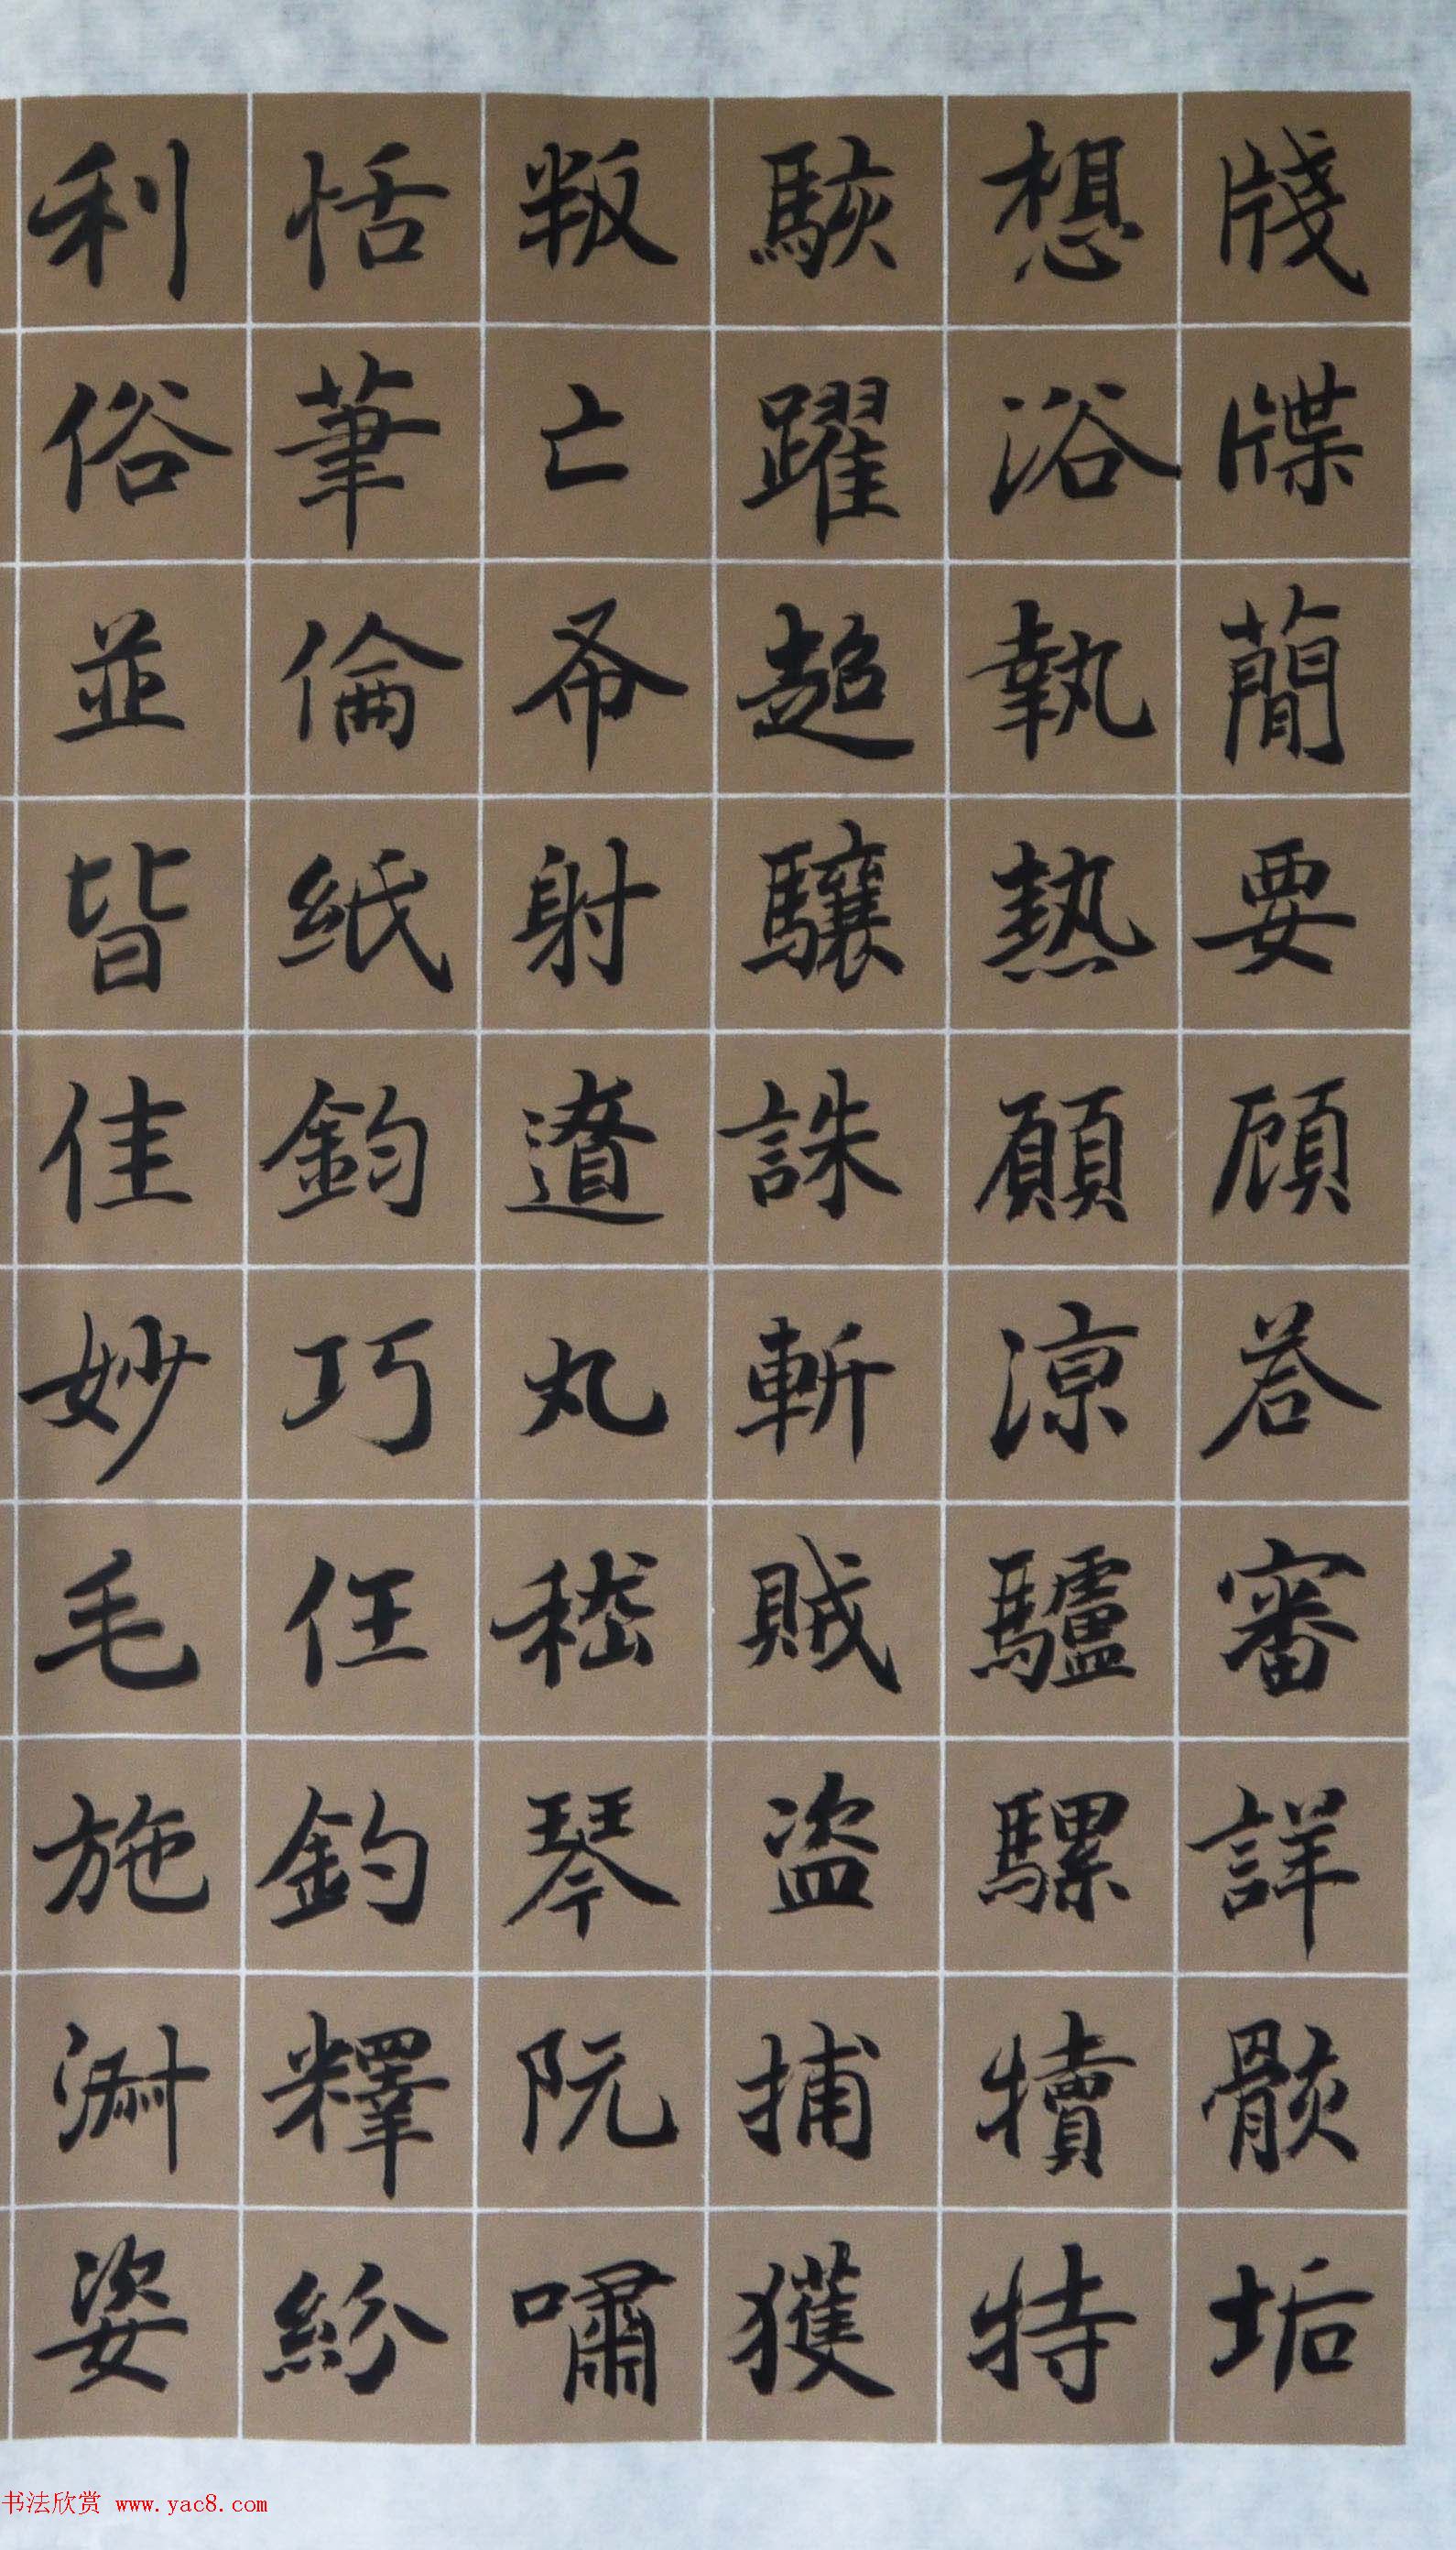 牋牒簡要顧荅審詳骸垢
想浴執熱願涼驢騾犢特
駭躍超驤誅斬賊盜捕獲
叛亡布射遼丸嵇琴阮嘯
恬筆倫紙鈞巧任釣釋紛
利俗並皆佳妙毛施淑姿
书法欣赏 www.yac8.com